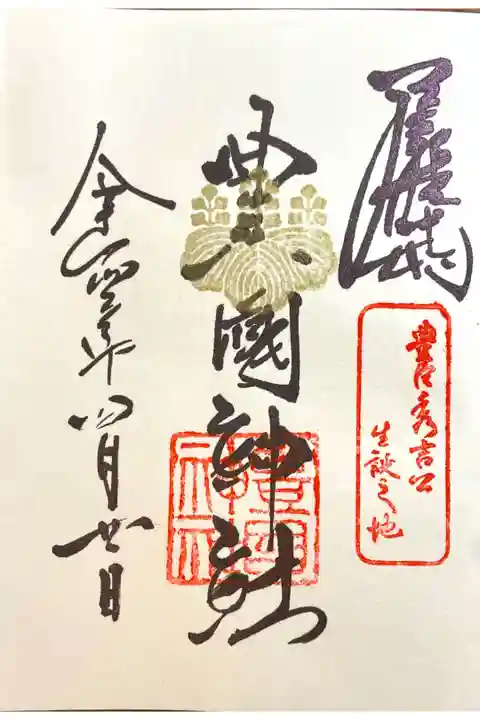 豊臣秀吉公
生誕之地
豊國神社
豊國
神社
令和年四月廿日